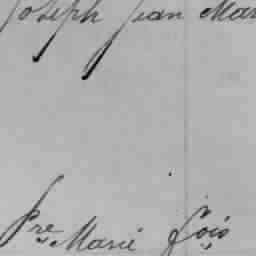 Joseph Jean Mar
Pre Marie fois